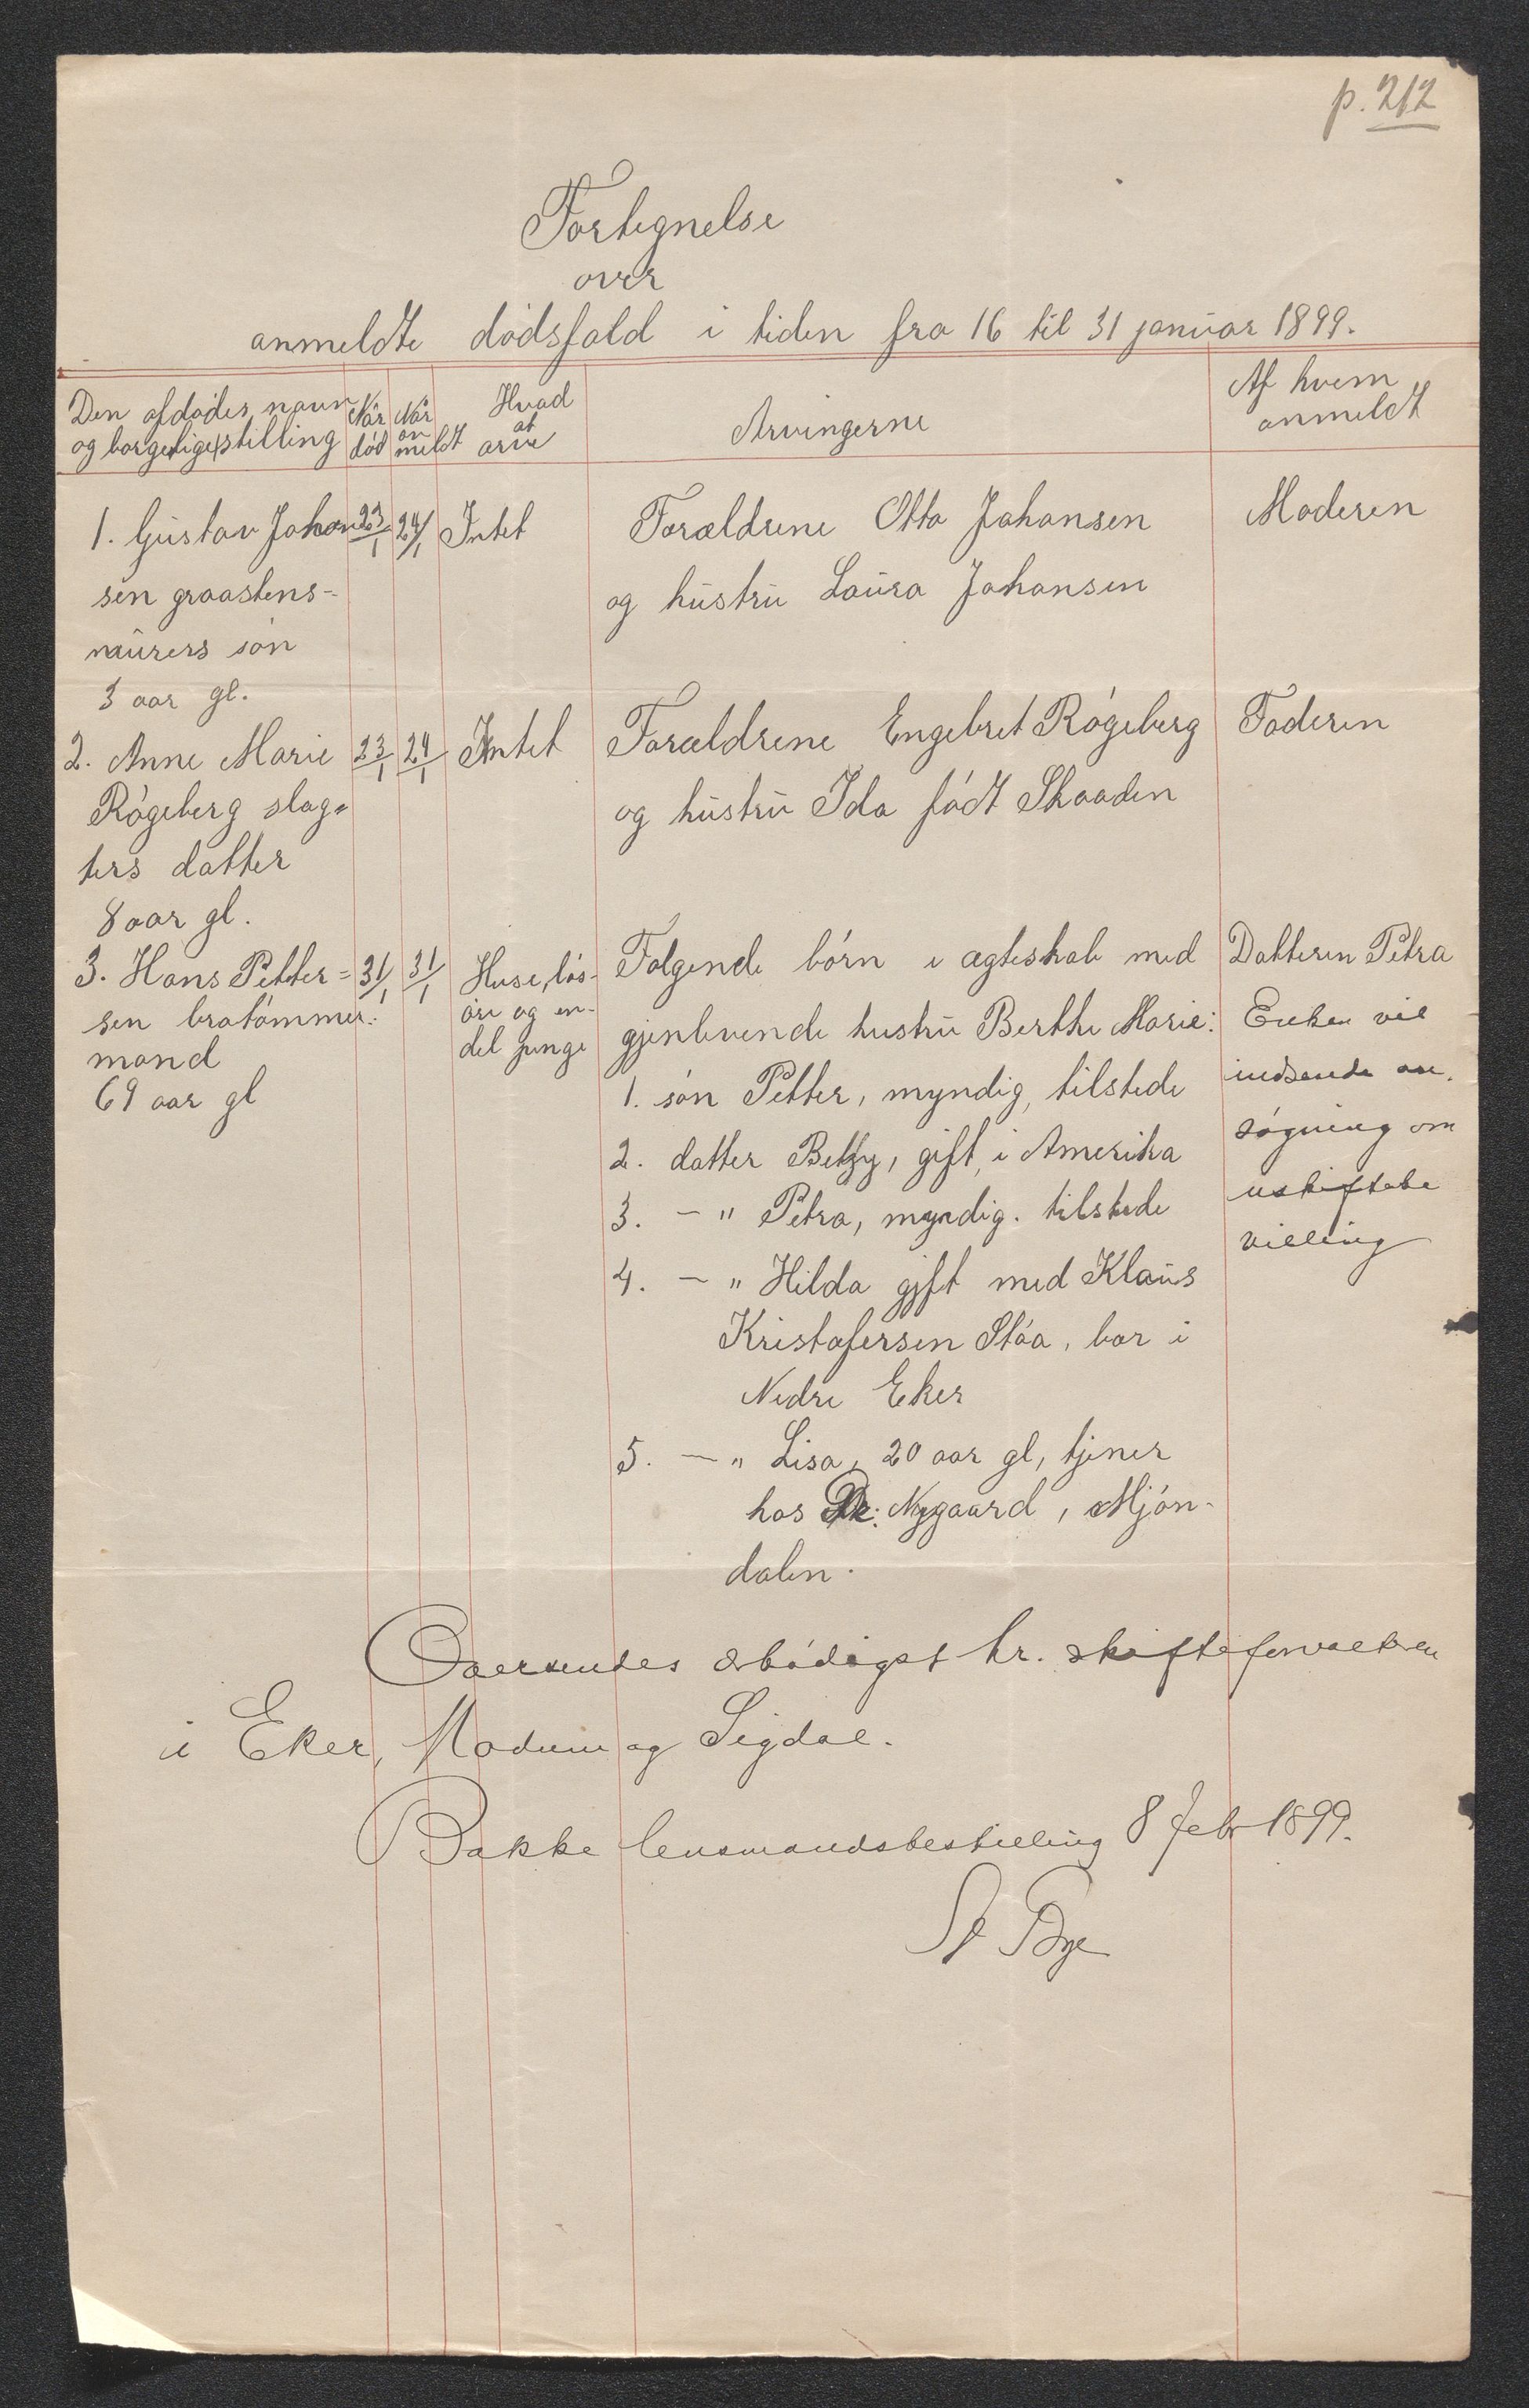 p. 212
Fortegnelse
over
anmeldte dødsfald i tiden fra 16 til 31 januar 1899.
Den afdødes navn og borgerlige stilling
Når død
Når anmeldt
Hvad at arve
Arvingerne
Af hvem anmeldt
1. Gustav Johan
sen graastens-
murers søn
3 aar gl.
23/1
24/1
Intet
Forældrene Otto Johansen
og hustru Laura Johansen
Moderen
2. Anne Marie
Røgeberg slag-
ters datter
8 aar gl.
23/1
24/1
Intet
Forældrene Engebret Røgeberg
og hustru Ida født Skaaden
Faderen
3. Hans Petter=
sen brotømmer:
mand
69 aar gl
31/1
31/1
Huse, løs-
øre og en-
del penge
Følgende børn i ægteskab med
gjenlevende hustru Berthe Marie:
1. søn Petter, myndig, tilstede
2. datter Betzy, gift, i Amerika
3. —" Petra, myndig. tilstede
4. —" Hilda gift med Klaus
Kristofersen Stöa, bor i
Nedre Eker
5. —" Lisa, 20 aar gl, tjener
hos Dr: Nygaard, Mjøn-
dalen.
Datteren Petra
Enken vil
indsende an.
søgning om
uskiftebe
villing
Oversendes ærbødigst hr. skifteforvalteren
i Eker, Modum og Sigdal.
Bakke lensmandsbestilling 8 feb 1899.
Bye